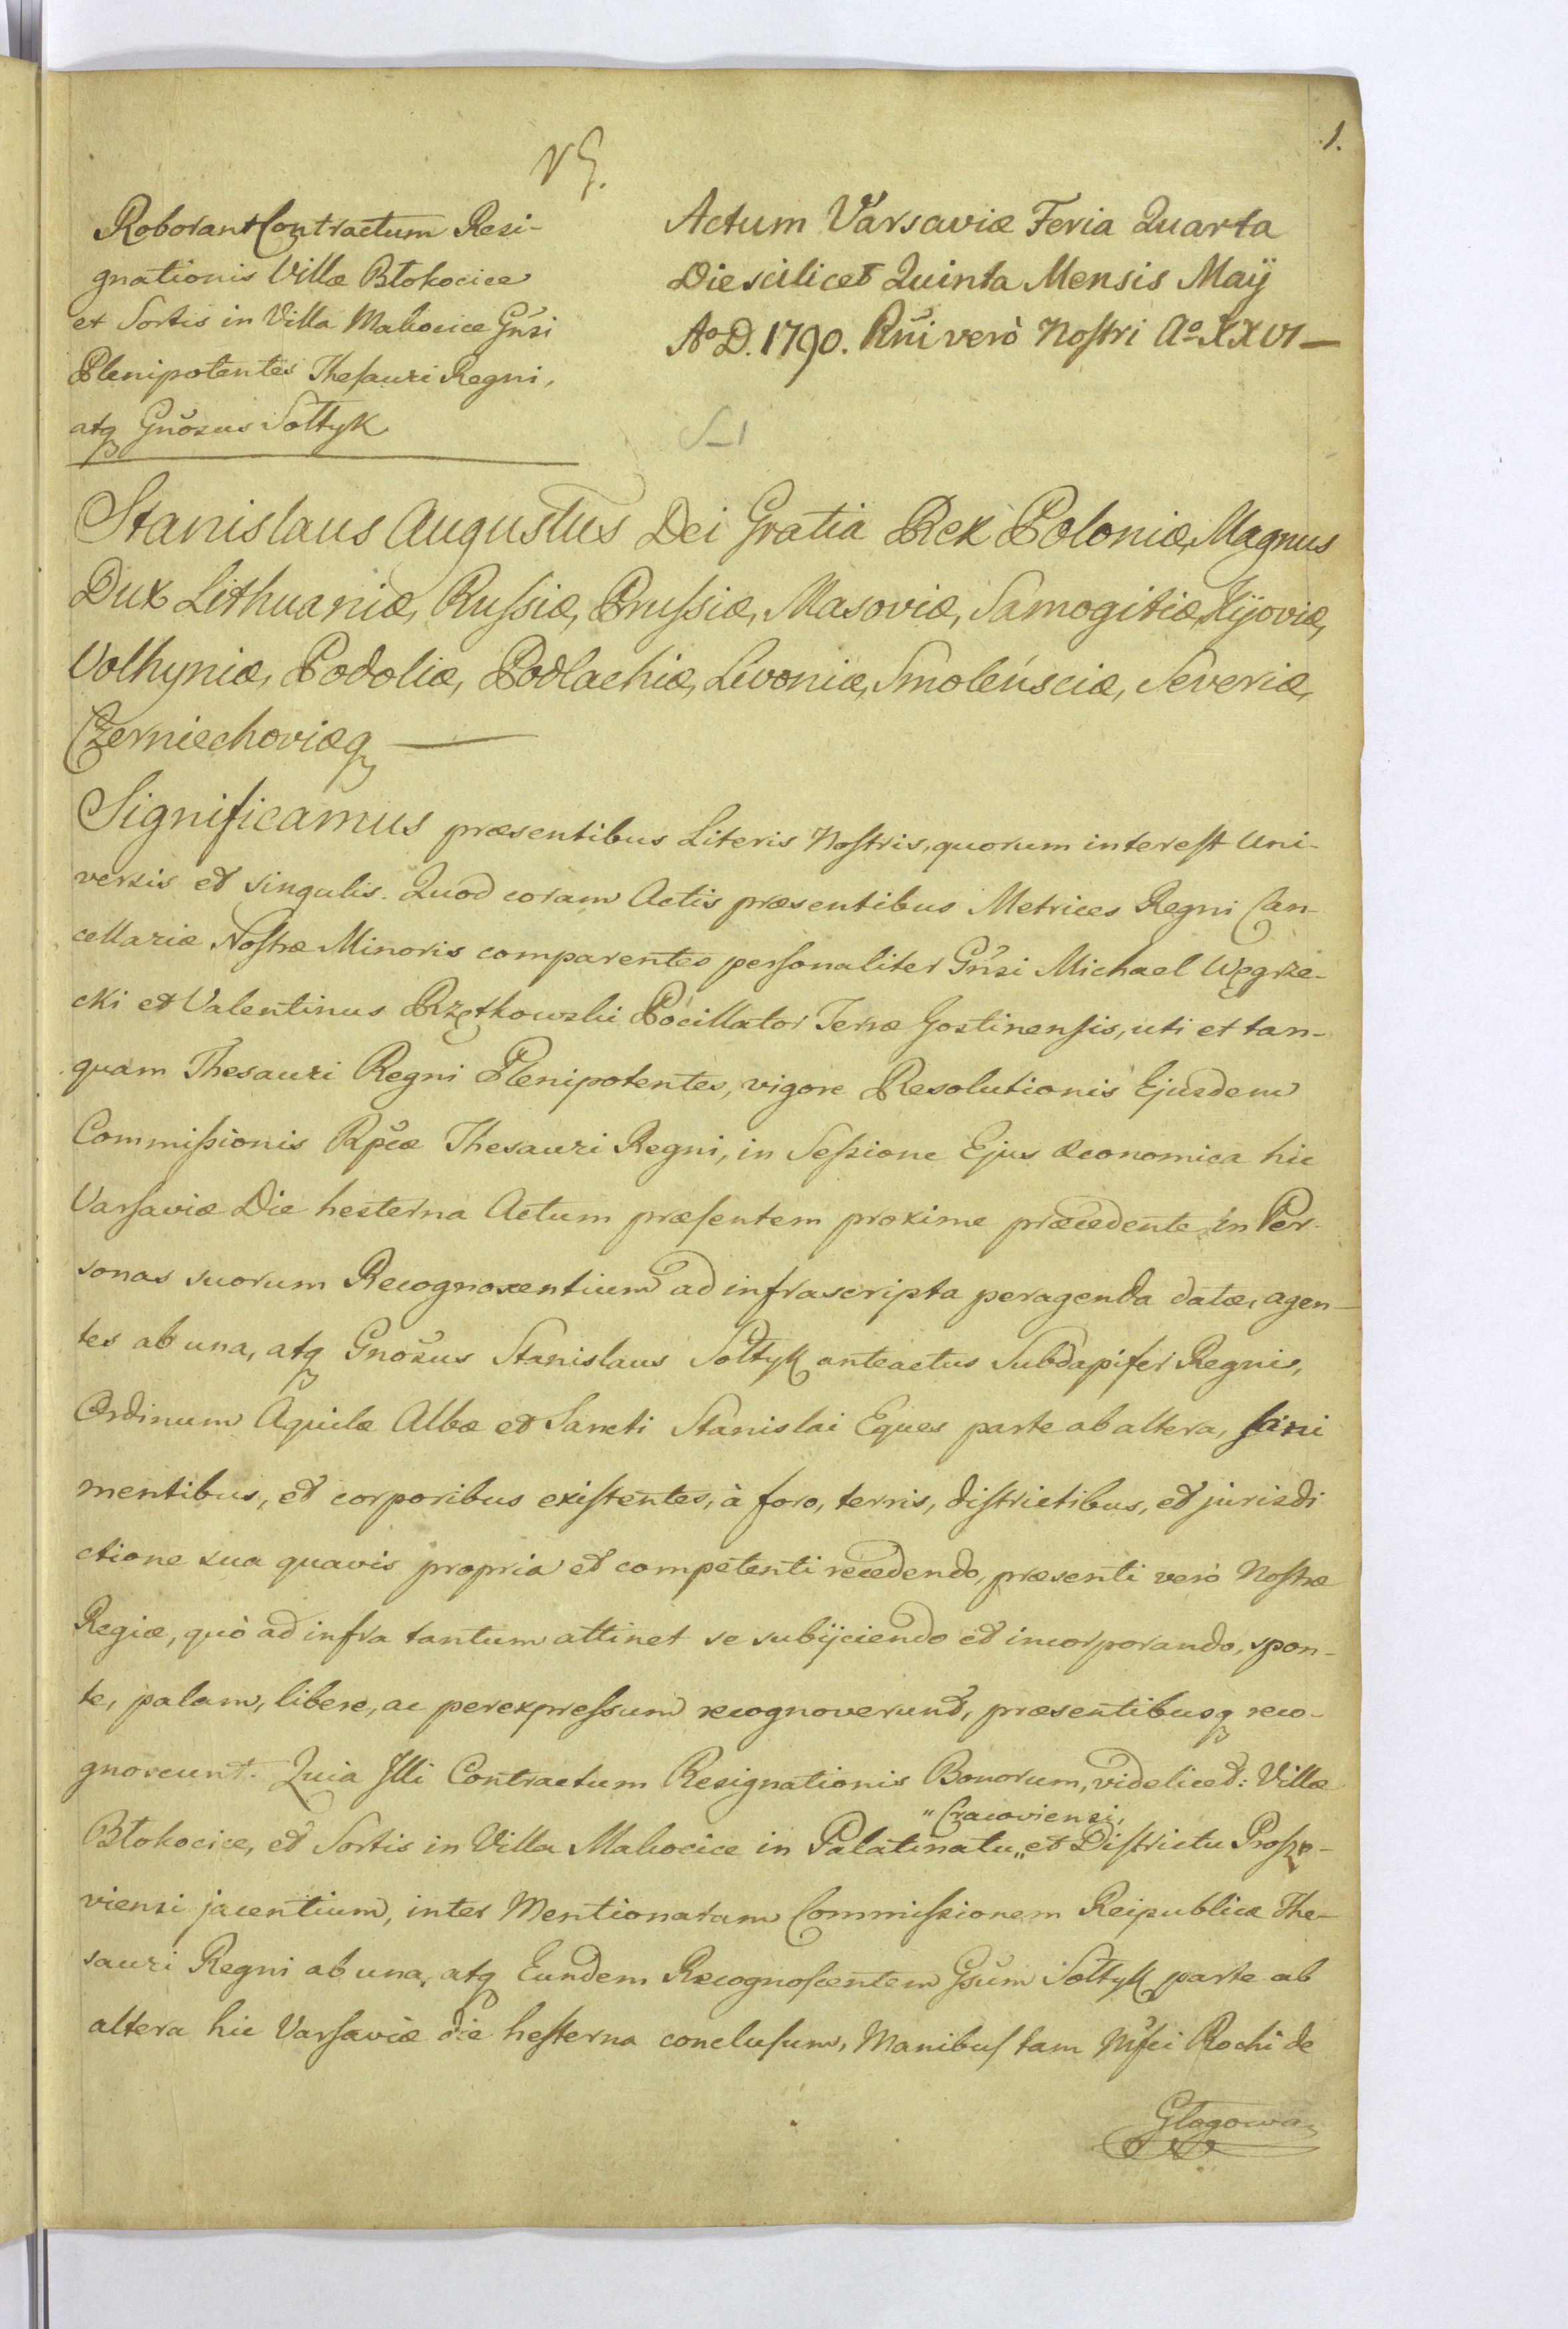 1.
Roborant Contractum Resi-
gnationis Villæ Błokocice
et Sortis in Villa Makocice Gn̆si
Plenipotentes Thesauri Regni,
atq Gnŏsus Sołtyk
Actum Varsaviæ Feria Quarta
Die scilicet Quinta Mensis Maÿ
Aº D. 1790. Rn̆i verò Nostri Aº XXVI —
Stanislaus Augustus Dei Gratia Rex Poloniæ, Magnus
Dux Lithuaniæ, Russiæ, Prussiæ, Masoviæ, Samogitiæ, Kijoviæ,
Volhyniæ, Podoliæ, Podlachiæ, Livoniæ, Smolénsciæ, Severiæ,
Czerniechoviæq —
Significamus præsentibus Literis Nostris, quorum interest Uni-
versis et singulis. Quod coram Actis præsentibus Metrices Regni Can-
cellariæ Nostræ Minoris comparentes personaliter Gn̆si Michael Węgrze-
cki et Valentinus Rzętkowski Pocillator Terræ Gostinensis, uti et tan-
quam Thesauri Regni Plenipotentes, vigore Resolutionis Ejusdem
Commissionis Rp̆cæ Thesauri Regni, in Sessione Ejus œconomica hic
Varsaviæ Die hesterna Actum præsentem proxime præcedente in Per-
sonas suorum Recognoscentium ad infrascripta peragenda datæ, agen-
tes ab una, atq Gnŏsus Stanislaus Sołtyk anteactus Subdapifer Regnis,
Ordinum Aquilæ Albæ et Sancti Stanislai Eques parte ab altera, sani
mentibus, et corporibus existentes, à foro, terris, districtibus, et jurisdi
ctione sua quavis propria et competenti recedendo, præsenti verò Nostræ
Regiæ, quò ad infra tantum attinet se subijciendo et incorporando, spon-
te, palam, libere, ac per expressum recognoverunt, præsentibusq reco-
gnoscunt. Quia Illi Contractum Resignationis Bonorum, videlicet: Villæ
" Cracoviensi,
Błokocice, et Sortis in Villa Makocice in Palatinatu,, et Districtu Proszo-
viensi jacentium, inter Mentionatam Commissionem Reipublicæ The-
sauri Regni ab una, atq Eundem Recognoscentem Gsŭm Sołtyk parte ab
altera hic Varsaviæ die hesterna conclusum, Manibus tam Mfĭci Rochi de
Głogowa